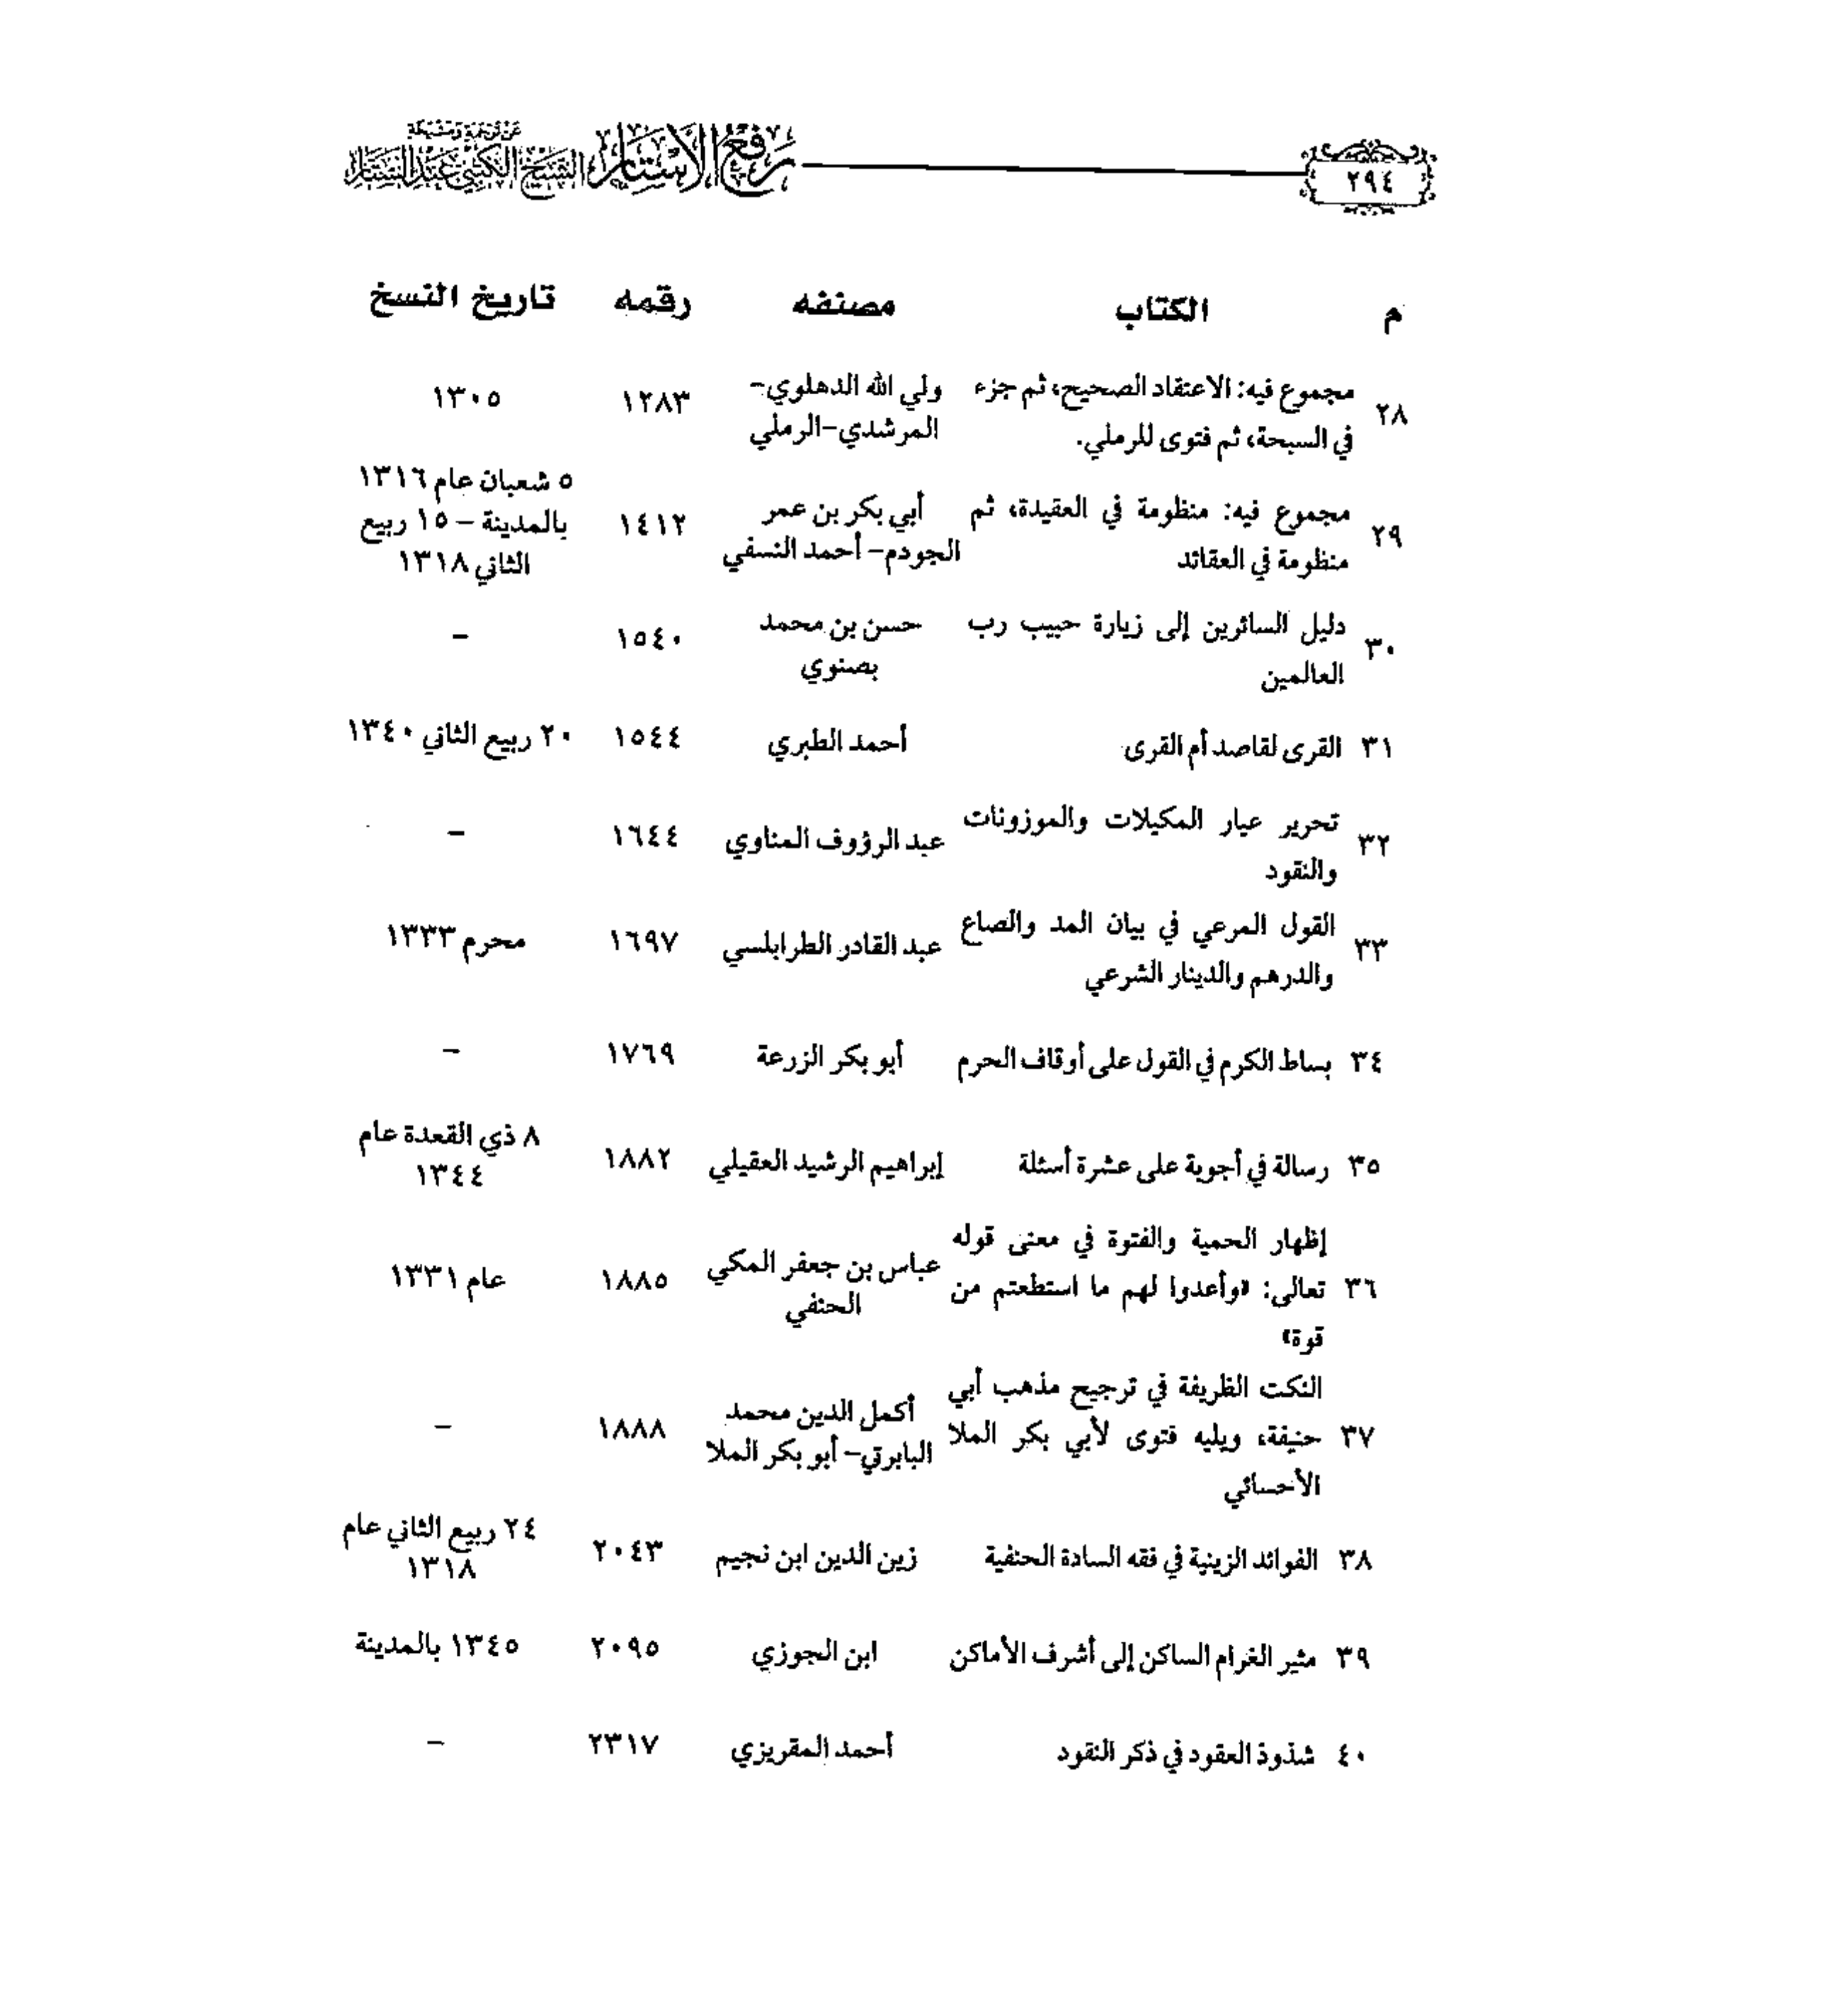 ٢٩٤
رفع الأستار
عن ترجمة ومشيخة
الشيخ الكتبي عبد الستار
م الكتاب مصنفه رقمه تاريخ النسخ
٢٨ مجموع فيه: الاعتقاد الصحيح، ثم جزء
في السبحة، ثم فتوى للرملي.
ولي الله الدهلوي-
المرشدي-الرملي
١٢٨٣
١٣٠٥
٢٩ مجموع فيه: منظومة في العقيدة، ثم
منظومة في العقائد
أبي بكر بن عمر
الجودم- أحمد النسفي
١٤١٢
٥ شعبان عام ١٣١٦
بالمدينة – ١٥ ربيع
الثاني ١٣١٨
٣٠ دليل السائرين إلى زيارة حبيب رب
العالمين
حسن بن محمد
بصنوي
١٥٤٠
–
٣١ القرى لقاصد أم القرى أحمد الطبري ١٥٤٤ ٢٠ ربيع الثاني ١٣٤٠
٣٢ تحرير عيار المكيلات والموزونات
والنقود
عبد الرؤوف المناوي
١٦٤٤
–
٣٣ القول المرعي في بيان المد والصاع
والدرهم والدينار الشرعي
عبد القادر الطرابلسي
١٦٩٧
محرم ١٣٣٣
٣٤ بساط الكرم في القول على أوقاف الحرم أبو بكر الزرعة ١٧٦٩ –
٣٥ رسالة في أجوبة على عشرة أسئلة إبراهيم الرشيد العقيلي ١٨٨٢
٨ ذي القعدة عام
١٣٤٤
٣٦ إظهار الحمية والفتوة في معنى قوله
تعالى: «وأعدوا لهم ما استطعتم من
قوة»
عباس بن جعفر المكي
الحنفي
١٨٨٥
عام ١٣٣١
٣٧ النكت الظريفة في ترجيح مذهب أبي
حنيفة، ويليه فتوى لأبي بكر الملا
الأحسائي
أكمل الدين محمد
البابرتي- أبو بكر الملا
١٨٨٨
–
٣٨ الفوائد الزينية في فقه السادة الحنفية زين الدين ابن نجيم ٢٠٤٣
٢٤ ربيع الثاني عام
١٣١٨
٣٩ مثير الغرام الساكن إلى أشرف الأماكن ابن الجوزي ٢٠٩٥ ١٣٤٥ بالمدينة
٤٠ شذوذ العقود في ذكر النقود أحمد المقريزي ٢٣١٧ –